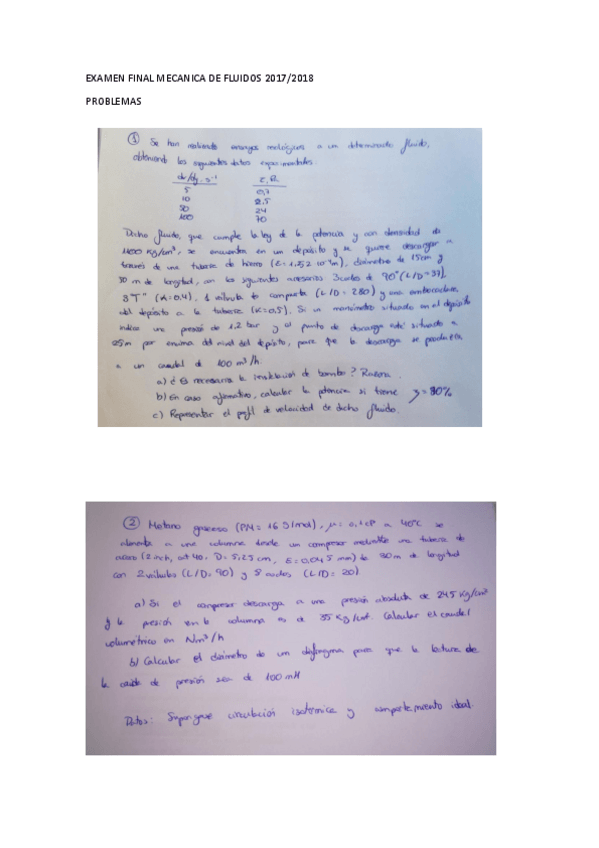 EXAMEN FINAL MECANICA DE FLUIDOS 2017/2018
PROBLEMAS
① Se han realizado ensayos reológicos a un determinado fluido,
obteniendo los siguientes datos experimentales.
du/dy, s⁻¹ τ, Pa
5 0,7
10 2.5
50 24
100 70
Dicho fluido, que cumple la ley de la potencia y con densidad de
1100 kg/m³, se encuentra en un depósito y se quiere descargar a
través de una tubería de hierro (ε = 1,52 10⁻⁴m), diámetro de 15cm y
30 m de longitud, con los siguientes accesorios: 3 codos de 90° (L/D = 37),
3 "T" (K=0.4), 1 válvula de compuerta (L/D = 280) y una embocadura
del depósito a la tubería (K=0,5). Si un manómetro situado en el depósito
indica una presión de 1,2 bar y el punto de descarga está situado a
25m por encima del nivel del depósito, para que la descarga se produzca
a un caudal de 100 m³/h.
a) ¿Es necesaria la instalación de bomba? Razona.
b) En caso afirmativo, calcular la potencia si tiene = 80%
c) Representar el perfil de velocidad de dicho fluido.
② Metano gaseoso (PM = 16 g/mol), μ: 0,1 cP a 40°C se
alimenta a una columna desde un compresor mediante una tubería de
acero (2 inch, cat 40. D = 5,25 cm, ε = 0,045 mm) de 30m de longitud
con 2 válvulas (L/D, 90) y 5 codos (L/D = 20)
a) Si el compresor descarga a una presión absoluta de Kg/cm²
y la presión en la columna es de Calcular el caudal
volumétrico en Nm³/h
b) Calcular el diámetro de un diafragma para que la lectura de
la caída de presión sea de 100
Datos: Supongase circulación isotérmica y comportamiento ideal.